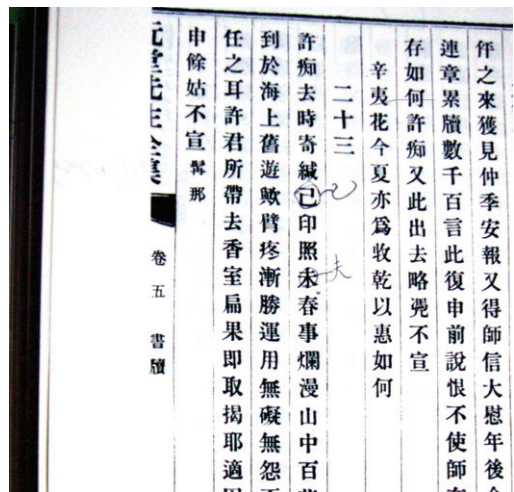 伻之來獲見仲季安報又得師信大慰年後
連章累牘數千百言此復申前說恨不使師
存如何許痴又此出去略凴不宣
辛夷花今夏亦爲收乾以惠如何
二十三
許痴去時寄緘已印照未春事爛漫山中百
已
夫
到於海上舊遊歟臂疼漸勝運用無礙無怨
任之耳許君所帶去香室扁果即取揭耶適
申餘姑不宣 髯那
阮堂先生全集
卷五 書牘